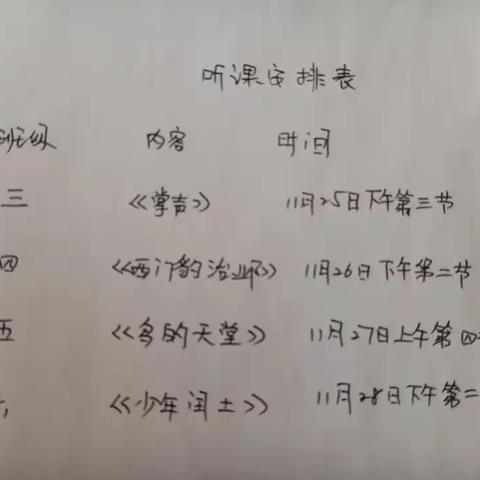 听课安排表
班级 内容 时间
三 《掌声》 11月25日下午第三节
四 《西门豹治邺》 11月26日下午第二节
五 《鸟的天堂》 11月27日上午第四
《少年闰土》 11月28日下午第二